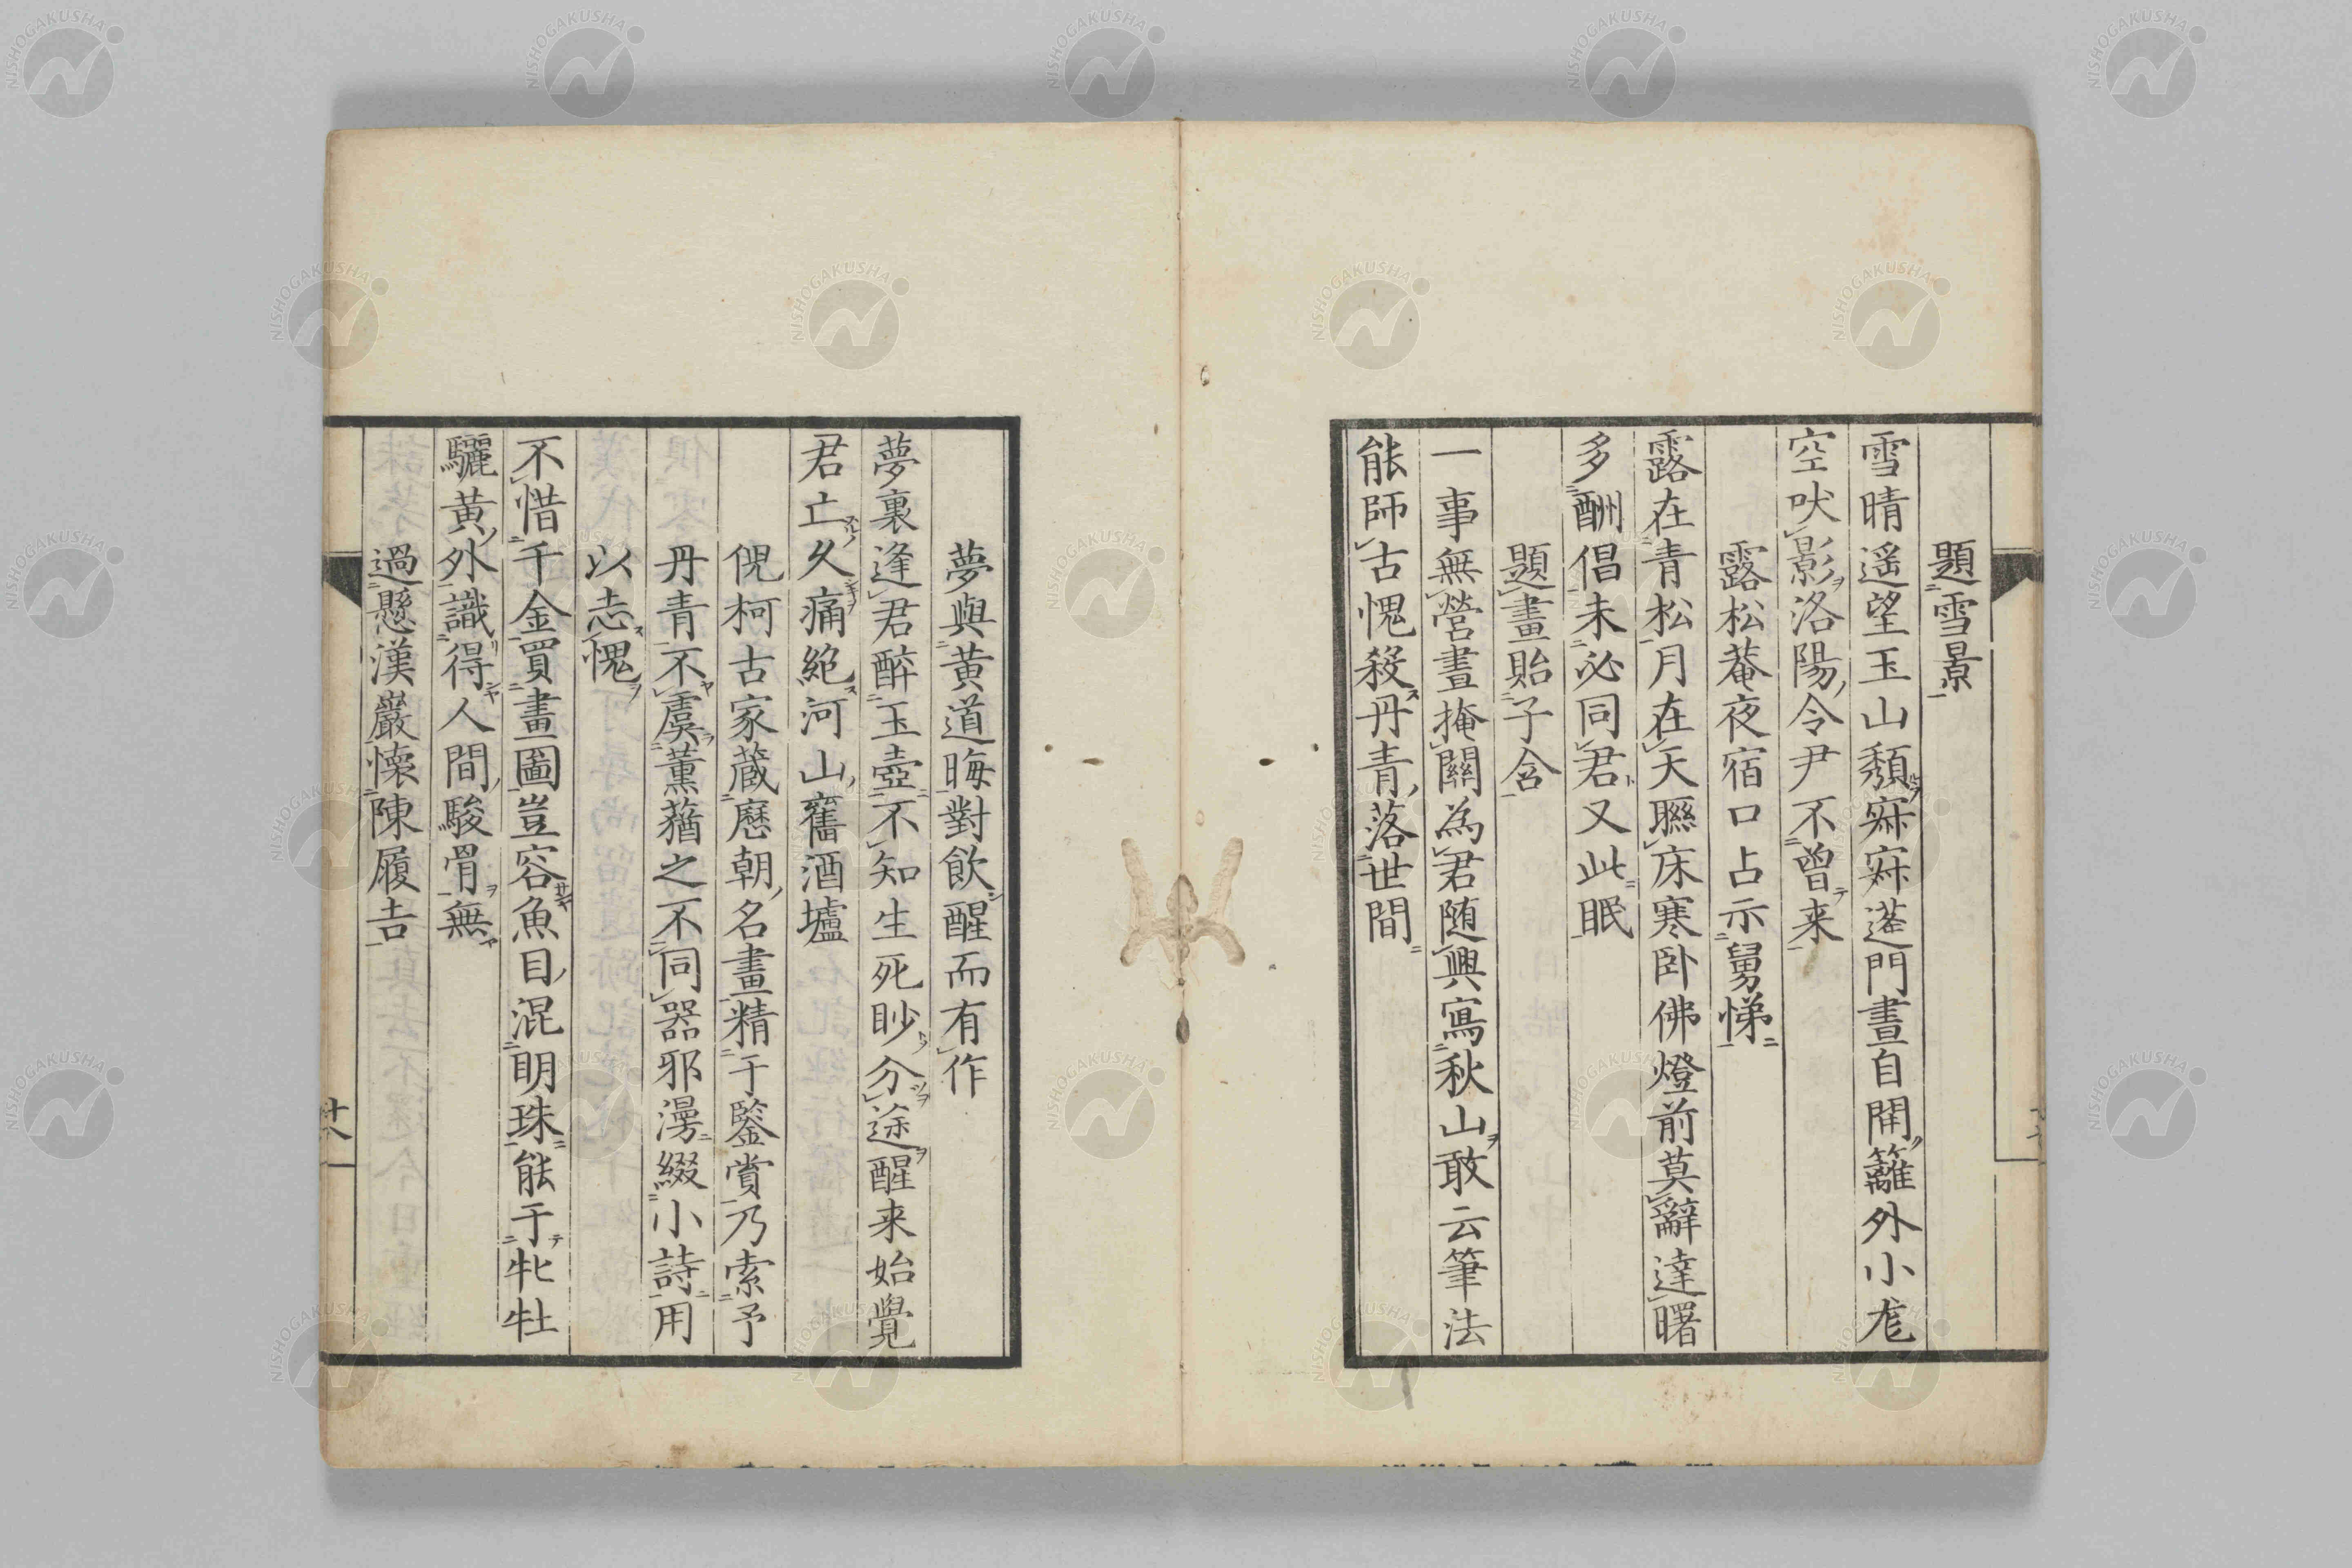 題雪景
雪晴遥望玉山頽寂寂蓬門晝自開籬外小尨
空吠影洛陽令尹不曾来
露松菴夜宿口占示舅悌
露在青松月在天聯床寒卧佛燈前莫辭達曙
多酬倡未必同君又此眠
題畫貽子含
一事無營晝掩關為君随興寫秋山敢云筆法
能師古愧殺丹青落世間
夢與黄道晦對飲醒而有作
夢裏逢君醉玉壺不知生死眇分途醒来始覺
君亡久痛絶河山舊酒壚
倪柯古家蔵歴朝名畫精于鑒賞乃索予
丹青不虞薰蕕之不同器邪漫綴小詩用
以志愧
不惜千金買畫圖豈容魚目混明珠能于牝牡
驪黄外識得人間駿骨無
過懸漢巖懐陳履吉
十八
NISHOGAKUSHA